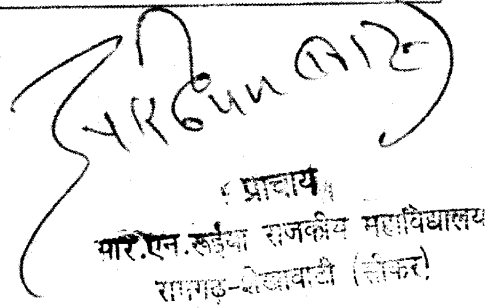 प्राचार्य
आर.एन.रूईया राजकीय महाविद्यालय
रामगढ़-शेखावाटी (सीकर)